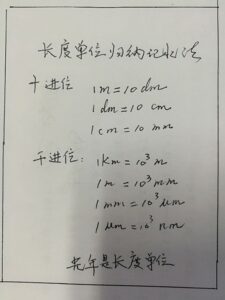 长度单位归纳记忆法
十进位
1m=10dm
1dm=10cm
1cm=10mm
千进位:
1Km=10³m
1m=10³mm
1mm=10³μm
1μm=10³nm
光年是长度单位